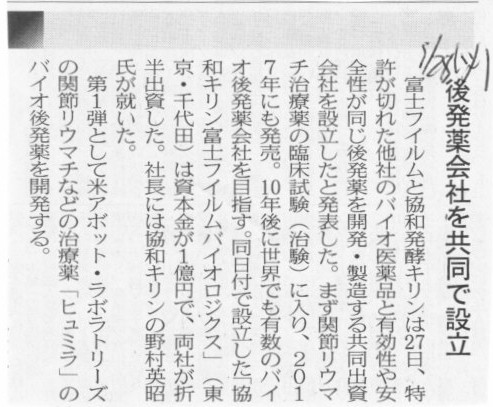 後発薬会社を共同で設立
富士フイルムと協和発酵キリンは27日、特
許が切れた他社のバイオ医薬品と有効性や安
全性が同じ後発薬を開発・製造する共同出資
会社を設立したと発表した。まず関節リウマ
チ治療薬の臨床試験（治験）に入り、201
7年にも発売。10年後に世界でも有数のバイ
オ後発薬会社を目指す。同日付で設立した「協
和キリン富士フイルムバイオロジクス」（東
京・千代田）は資本金が1億円で、両社が折
半出資した。社長には協和キリンの野村英昭
氏が就いた。
第1弾として米アボット・ラボラトリーズ
の関節リウマチなどの治療薬「ヒュミラ」の
バイオ後発薬を開発する。